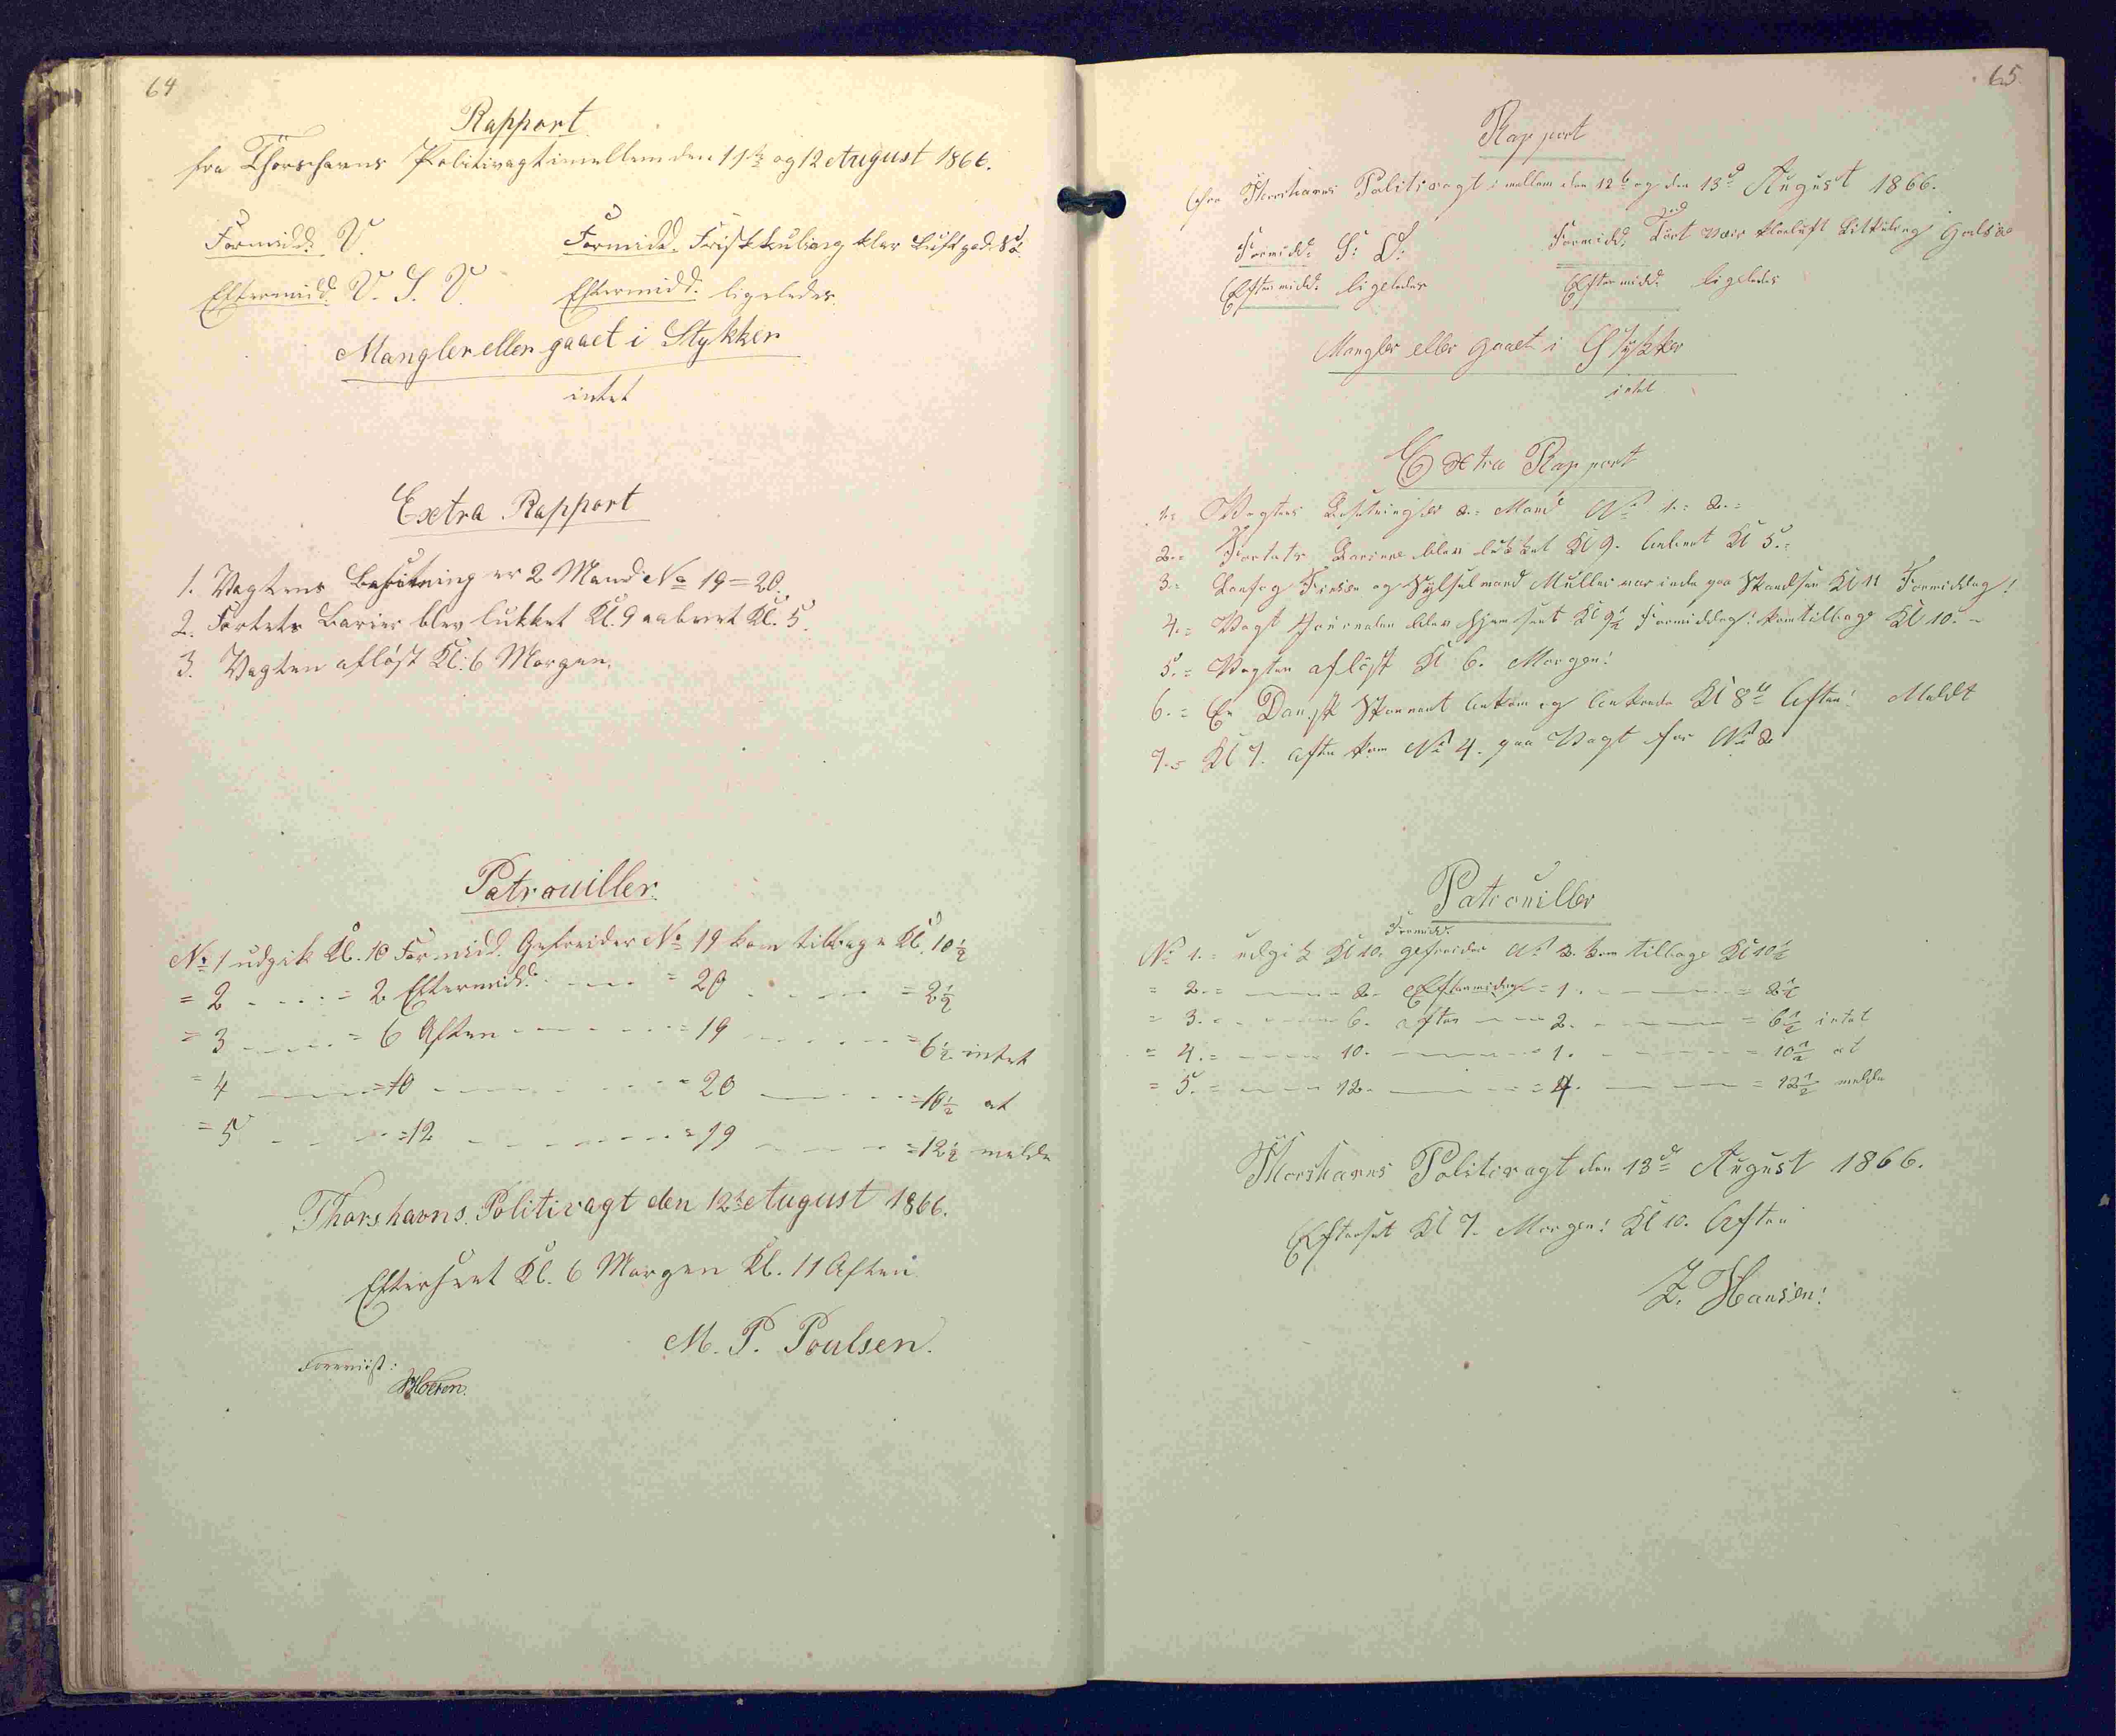 64
Rapport
fra Thorshavns Politivagt imellem den 11te og 12 August 1866.
Formidd. V.
Formidd. Frisk kuling klar Luft god Sø.
Eftermidd. V. S. V.
Eftermidd. ligeledes.
Mangler eller gaaet i Stykker
intet
Extra Rapport
1. Vagtens Besætning er 2 Mand No 19 = 20.
2. Fortets Barier blev lukket Kl. 9 aabnet Kl. 5.
3. Vagten afløst Kl: 6 Morgen.
Patrouiller
No 1 udgik Kl. 10 Formidd. Gefreider No 19 kom tilbage Kl. 10½
= 2 - - - - = 2 Eftermidd. - - - - = 20 - - - - = 2½
= 3 - - - - = 6 Aften - - - - = 19 - - - - = 6½ intet
= 4 - - - - = 10 - - - - = 20 - - - - = 10½ at
= 5 - - - - = 12 - - - - = 19 - - - - = 12½ melde
Thorshavns Politivagt den 12te August 1866.
Efterseet Kl. 6 Morgen Kl. 11 Aften
M. P. Poulsen.
Foreviist:
65
Rapport
fra Thorshavns Politivagt imellem den 12te og den 13de August 1866.
Formidd: S: O:
Formidd. Tørt Veir klarluft Litkuling god Sø
Eftermidd: ligeledes
Eftermidd: ligeledes
Mangler eller gaaet i Stykker
intet
Extra Rapport
1.= Vagtens Besætning er 2.= Mand No 1.= 2.=
2.= Fortets Bariere blev lukket Kl 9. Aabnet Kl 5.=
3.= og Sysselmand Müller var inde paa Skandsen Kl 11 Formiddag!
4.= Vagt Journalen blev hjemsent Kl 9½ Formiddag: kom tilbage Kl 10.-
5.= Vagten afløst Kl 6. Morgen!
6.= En Dansk Skonnert Ankom og Ankrede Kl 8te Aften! Meldt
7.= Kl 7. Aften kom No 4. paa Vagt for No 2
Patrouiller
No 1.= udgik Kl 10. Formidd: gefreider No 2. kom tilbage Kl 10½
= 2.= - - - - 2. Eftermiddag = 1. - - - - = 2½
= 3.= - - - - 6. Aften - - - 2. - - - - = 6½ intet
= 4.= - - - - 10. - - - - = 1. - - - - = 10½ at
= 5.= - - - - 12. - - - - = 4. - - - - = 12½ melde
Thorshavns Politivagt den 13de August 1866.
Efterset Kl 7. Morgen! Kl 10. Aften
Z. Hansen!